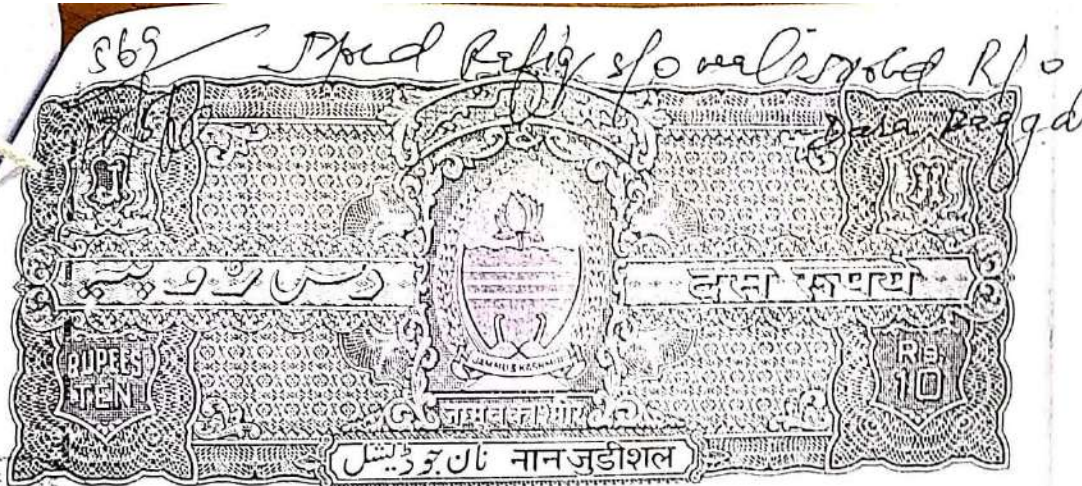 569 Syed Rafiq s/o wali syed R/o
Dara
دس روپیہ
दस रूपये
RUPEES
TEN
Rs.
10
JAMMU & KASHMIR
जम्मू कश्मीर
نان جوڈیشل नानजुडीशल